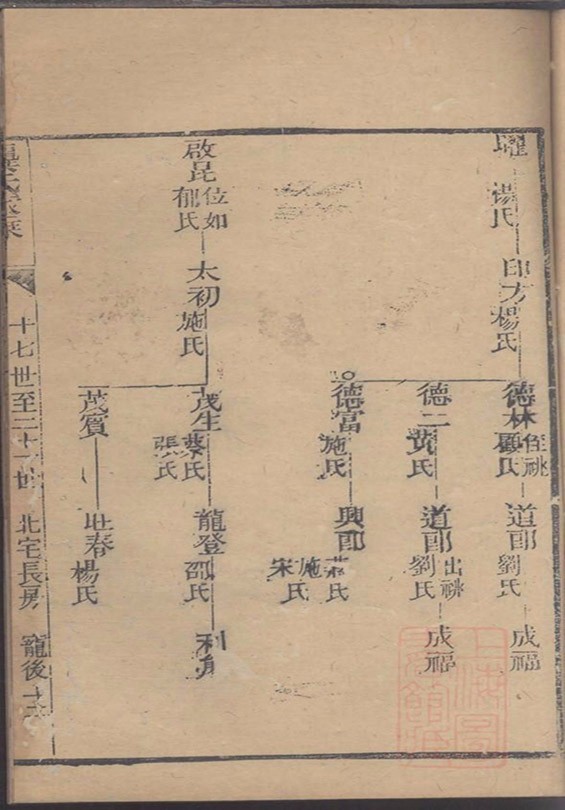 楊氏
印方
楊氏
德林
侄祧
顧氏
道郎
劉氏
成福
德二
黃氏
道郎
出祧
劉氏
成福
德富
施氏
興郎
莊氏
施氏
宋氏
啟昆
位如
郁氏
太初
施氏
茂生
蔡氏
張氏
龍登
邵氏
利身
茂賓
壯春
楊氏
十七世至二十一世
北宅長房
寵後